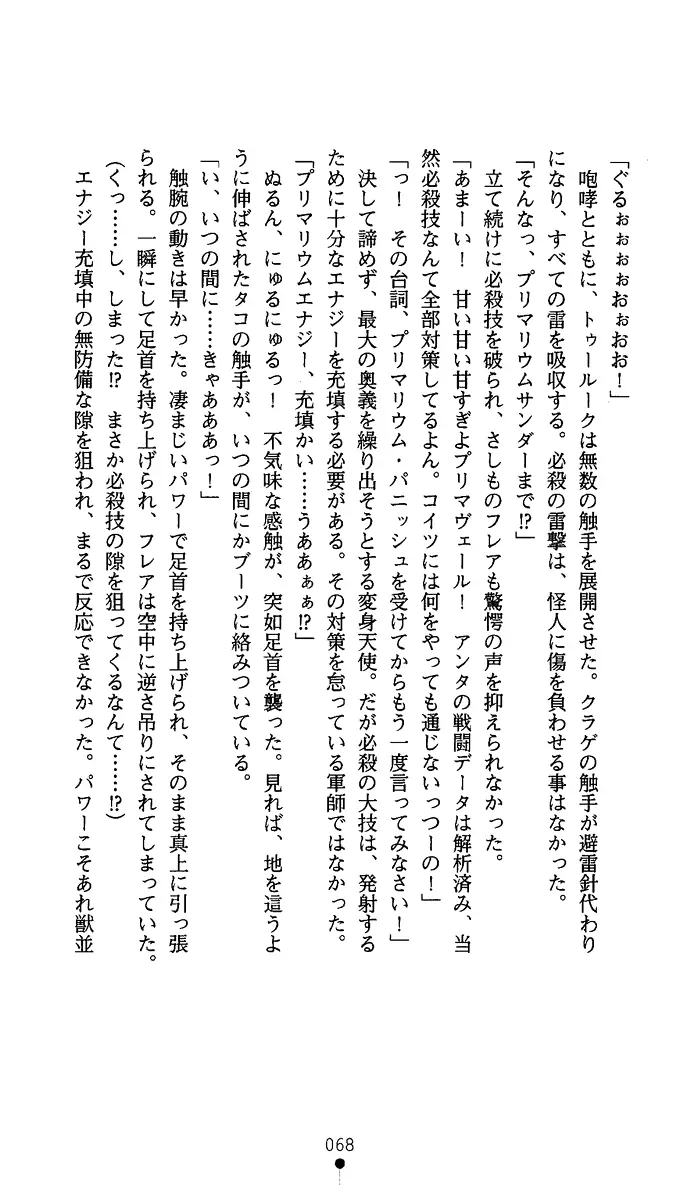 「ぐるぉぉぉぉおぉおお！」
　咆哮とともに、トゥールークは無数の触手を展開させた。クラゲの触手が避雷針代わり
になり、すべての雷を吸収する。必殺の雷撃は、怪人に傷を負わせる事はなかった。
「そんなっ、プリマリウムサンダーまで!?」
　立て続けに必殺技を破られ、さしものフレアも驚愕の声を抑えられなかった。
「あまーい！　甘い甘い甘すぎよプリマヴェール！　アンタの戦闘データは解析済み、当
然必殺技なんて全部対策してるよん。コイツには何をやっても通じないっつーの！」
「っ！　その台詞、プリマリウム・パニッシュを受けてからもう一度言ってみなさい！」
　決して諦めず、最大の奥義を繰り出そうとする変身天使。だが必殺の大技は、発射する
ために十分なエナジーを充填する必要がある。その対策を怠っている軍師ではなかった。
「プリマリウムエナジー、充填かい……うああぁぁ!?」
　ぬるん、にゅるにゅるっ！　不気味な感触が、突如足首を襲った。見れば、地を這うよ
うに伸ばされたタコの触手が、いつの間にかブーツに絡みついている。
「い、いつの間に……きゃあああっ！」
　触腕の動きは早かった。凄まじいパワーで足首を持ち上げられ、そのまま真上に引っ張
られる。一瞬にして足首を持ち上げられ、フレアは空中に逆さ吊りにされてしまっていた。
（くっ……し、しまった!?　まさか必殺技の隙を狙ってくるなんて……!?）
　エナジー充填中の無防備な隙を狙われ、まるで反応できなかった。パワーこそあれ獣並
068